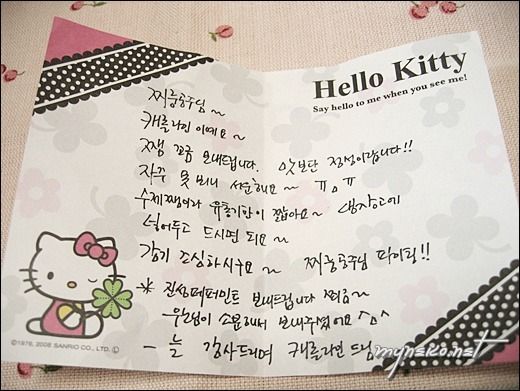 Hello Kitty
Say hello to me when you see me!
찌롱공주님~
캐롤라인이예요~
쨈 꼬금 보내드립니다. 맛보단 정성이랍니다!!
자꾸 못 뵈니 서운해요~ ㅠㅁㅠ
수제쨈이라 유통기한이 짧아요~ 냉장고에
넣어두고 드시면 되요~
감기 조심하시구요~ 찌롱공주님 파이팅!!
* 진상페퍼민트 보내드립니다 찌롱~
우산님이 소포해서 보내주셨어요 ^ㅁ^
- 늘 감사드리며 캐롤라인 드림
©1976, 2008 SANRIO CO., LTD. Ⓛ
myneko.net